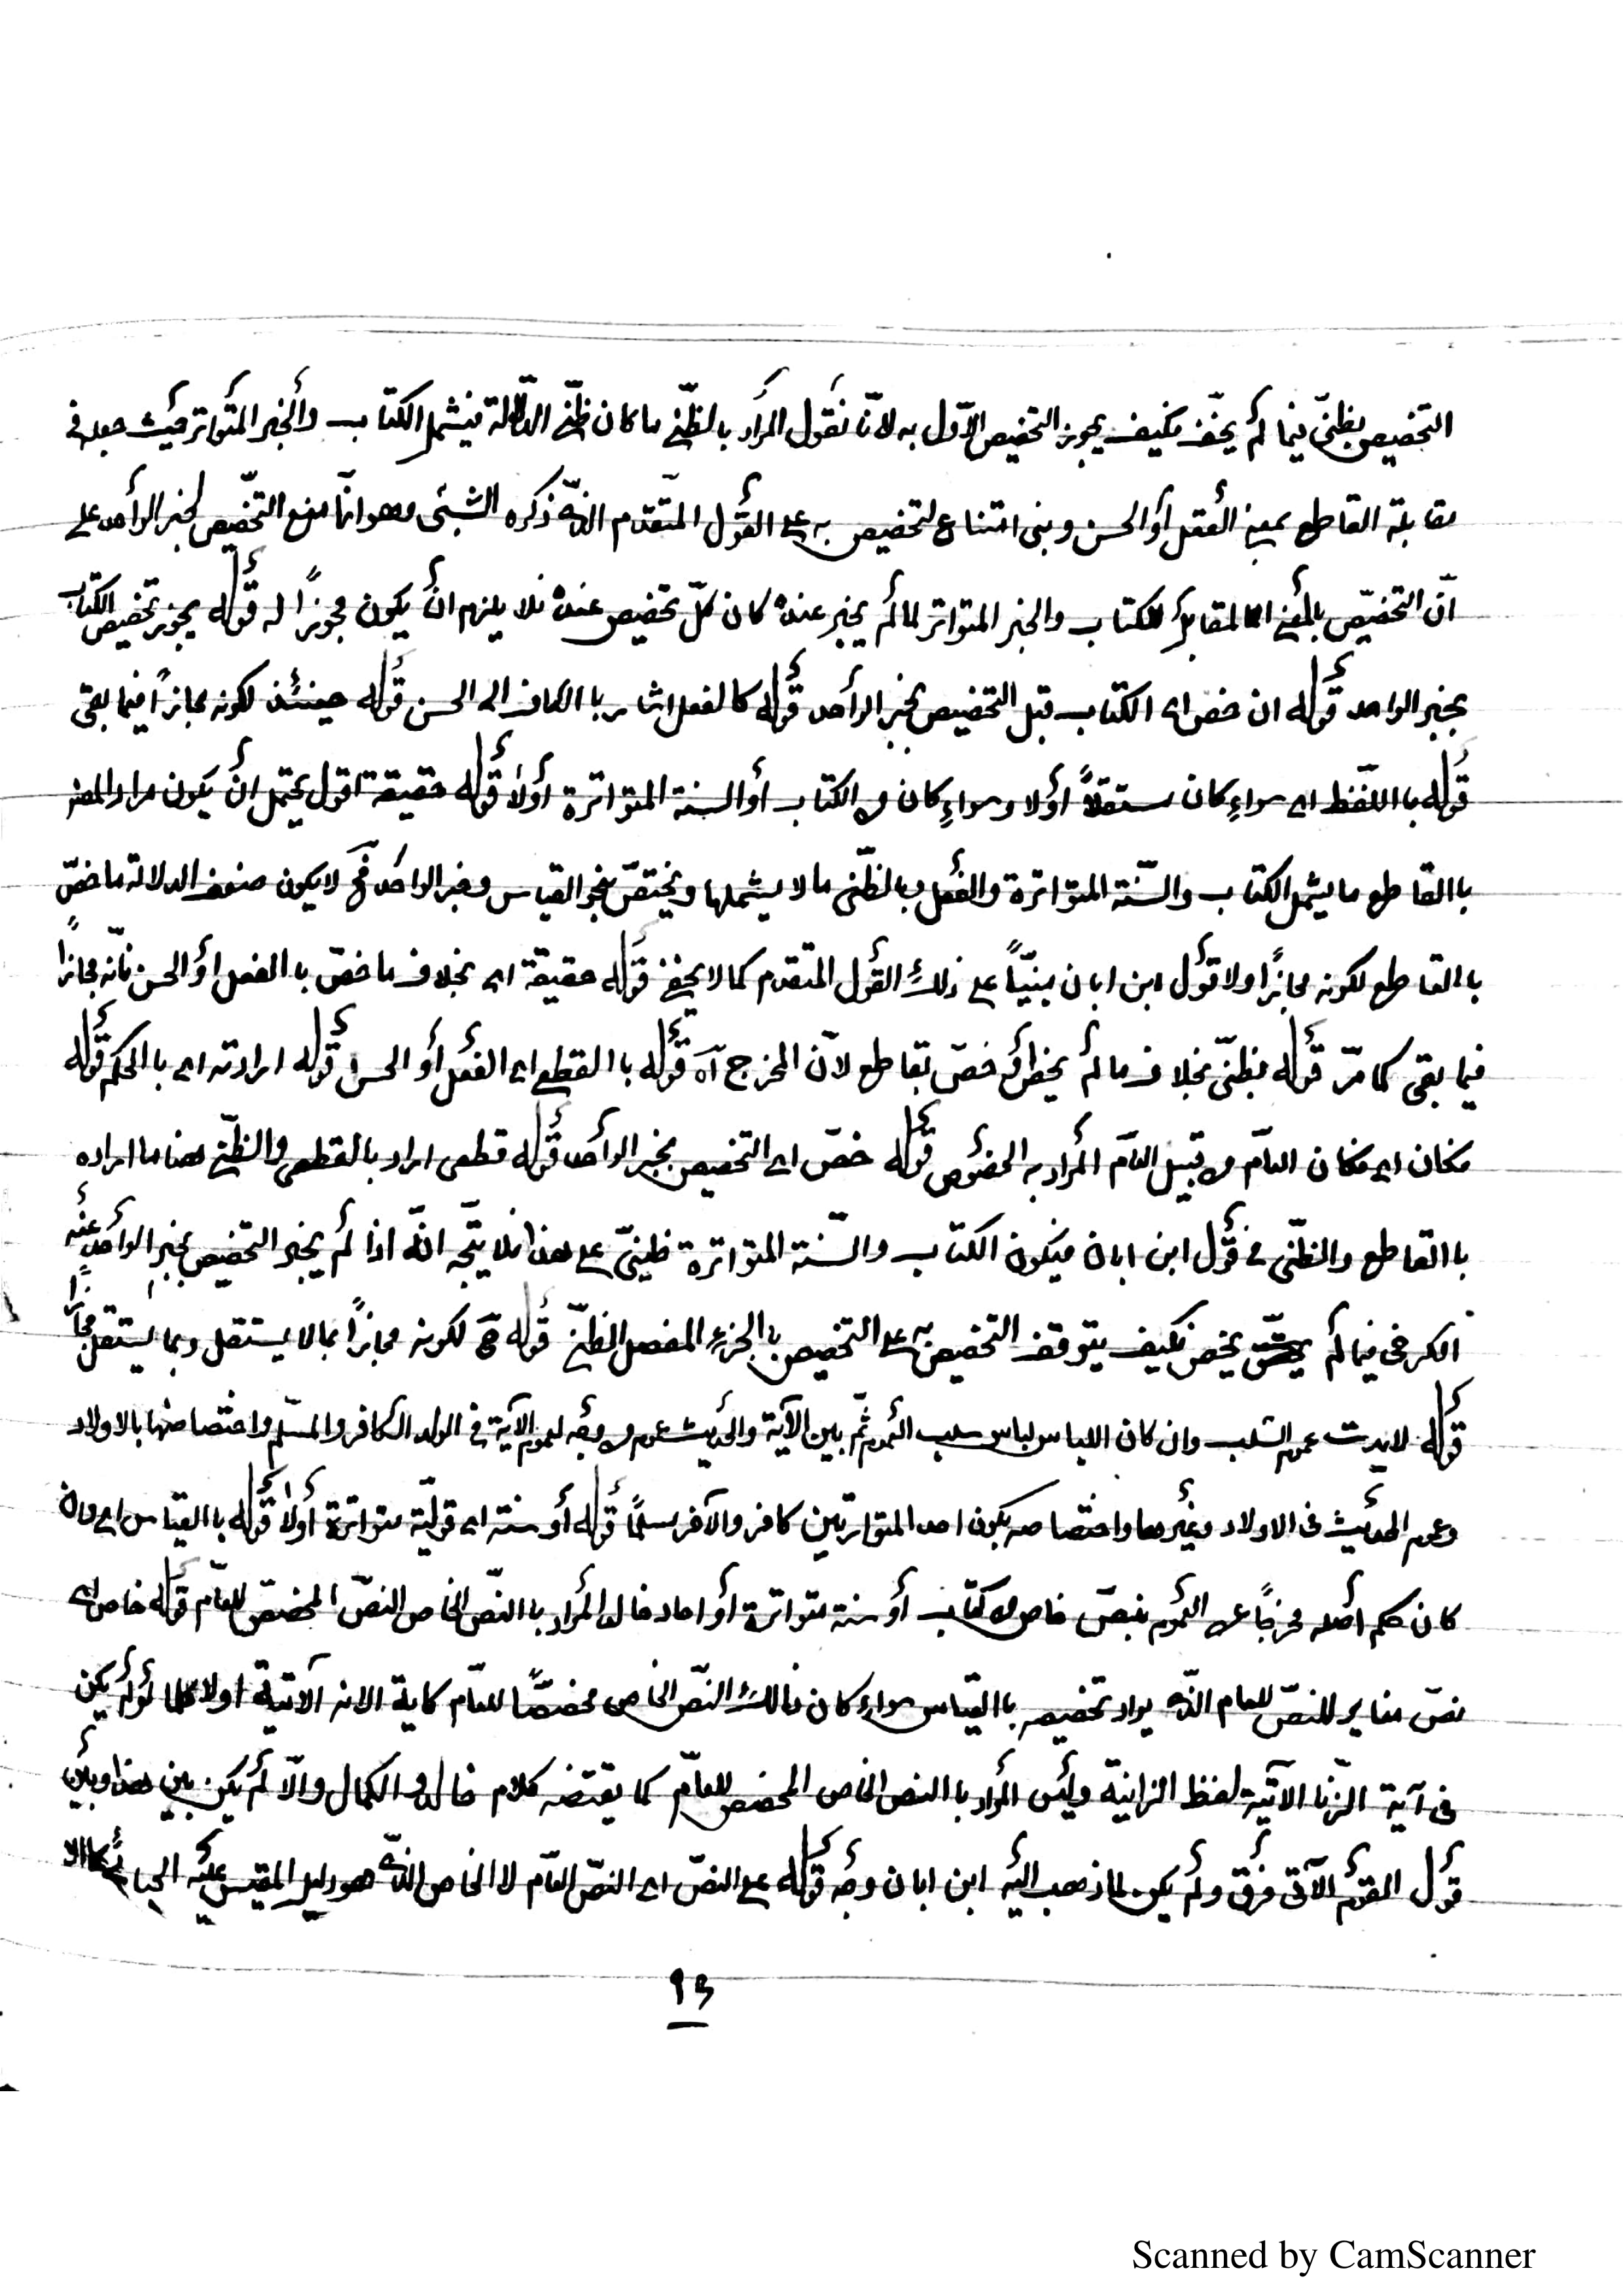 التخصيص بظنّيّ فيما لم يخصّ فكيف يجوز التخصيص الاوّل به لانّا نقول المراد بالظنّي ما كان ظنّي الدلالة فيشمل الكتاب والخبر المتواتر حيث جعله في
مقابلة القاطع بمعنى العقل أو الحسّ وبنى امتناع لتخصيص به على القول المتقدم الذي ذكره الشيئ وهو انما منع التخصيص لخبر الواحد على
انّ التخصيص بالمعنى المقابل للكتاب والخبر المتواتر لما لم يجز عنده كان كلّ تخصيص عنده فلا يلزم ان يكون مجوزاً له قوله يجوز تخصيص الكتاب
بخبر الواحد قوله ان خص اى الكتاب قبل التخصيص بخبر الواحد قوله كالفعل اشار باالكاف الى الحسن قوله حينئذ لكونه مجازاً فيما بقى
قوله بااللفظ اى سواء كان مستقلاً أولا وسواء كان من الكتاب أو السنة المتواترة أولا قوله حقيقة اقول يحتمل ان يكون مراد المصنف
باالقاطع ما يشمل الكتاب والسّنة المتواترة والعقل وبالظنّى ما لا يشملها ويختصّ بنحو القياس وخبر الواحد فح لا يكون ضعف الدلالة ما خصّ
باالقاطع لكونه مجازًا ولا قول ابن ابان مبنيّاً على ذلك القول المتقدم كما لا يخفى قوله حقيقة اى بخلاف ما خصّ باالعقل أو الحس فانّه مجازاً
فيما بقى كما مرّ قوله بظنّى بخلاف ما لم يخص أو خصّ بقاطع لانّ المخرج آه قوله باالقطع اى العقل أو الحس قوله ارادته اى باالحكم قوله
فكان اى فكان العامّ من قبيل العامّ المراد به الخصوص قوله خصّ اى التخصيص بخبر الواحد قوله قطعى اراد بالقطعى والظنّي هنا ما اراده
باالقاطع والظنّى فى قول ابن ابان فيكون الكتاب والسّنة المتواترة ظنيّى على هذا فلا يتّجه انّه اذا لم يجز التخصيص بخبر الواحد عند
الكرخى فيما لم يخص فكيف يتوقف التخصيص به على التخصيص باالجزء المفصل الظنّى قوله ح لكونه مجازاً بمالا يستقل وبما يستقل مجازاً
قوله لايرث عموم السّلب وان كان اللباس لباس سلب العموم ثمّ بين الآية والحديث عموم من وجه لعموم الآية فى الولد الكافر والمسلم واختصاصها بالاولاد
وعموم الحديث فى الاولاد وغيرها واختصاصه بكون احد المتوارثين كافر والآخر مسلمًا قوله أو سنة اى قوليّة متواترة أولا قوله باالقياس اى بان
كان حكم أصله مخرجاً عن العموم بنصّ خاص من كتاب أو سنة متواترة أو احاد خالد المراد باالنّص الخاص النصّ المخصّص للعامّ قوله خاص اى
نصّ مغاير للنصّ للعام الذى يراد تخصيصه باالقياس سواء كان ذالك النصّ الخاص مخصّصًا للعامّ كاية الامة الآتية اولا كما لو لم يكن
فى آية الزّنا الآتية لفظ الزانية وليس المراد باالنص الخاص المخصص للعامّ كما يقتضه كلام خالد و الكمال والاّ لم يكن بين هذا وبين
قول القوم الآتى فرق ولم يكن لما ذهب اليه ابن ابان وجه قوله على النصّ اى النصّ العامّ لا الخاص الذى هو دليل المقيس عليه
٩٤
Scanned by CamScanner